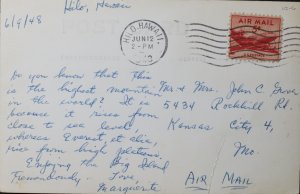 Hilo, Hawaii
6/9/48
HILO, HAWAII.
JUN 12
2 - PM
AIR MAIL
5¢
Do you know that this
is the highest mountain
in the world? It is
because it rises from
close to sea level,
whereas Everest et alii,
rise from high plateaus.
Enjoying the Big Island
Tremendously. - Love,
Marguerite
Mr + Mrs. John C.
5434 Rockhill Rd.
Kansas City 4,
Mo.
AIR MAIL